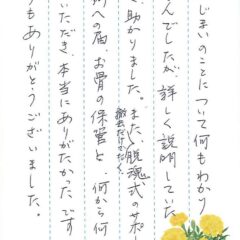 じまいのことについて何もわかり
んでしたが、詳しく説明していた
、助かりました。また、脱魂式のサポー
撤去だけでなく、
所への届、お骨の保管と、何から何
いただき、本当にありがたかったです
うもありがとうございました。